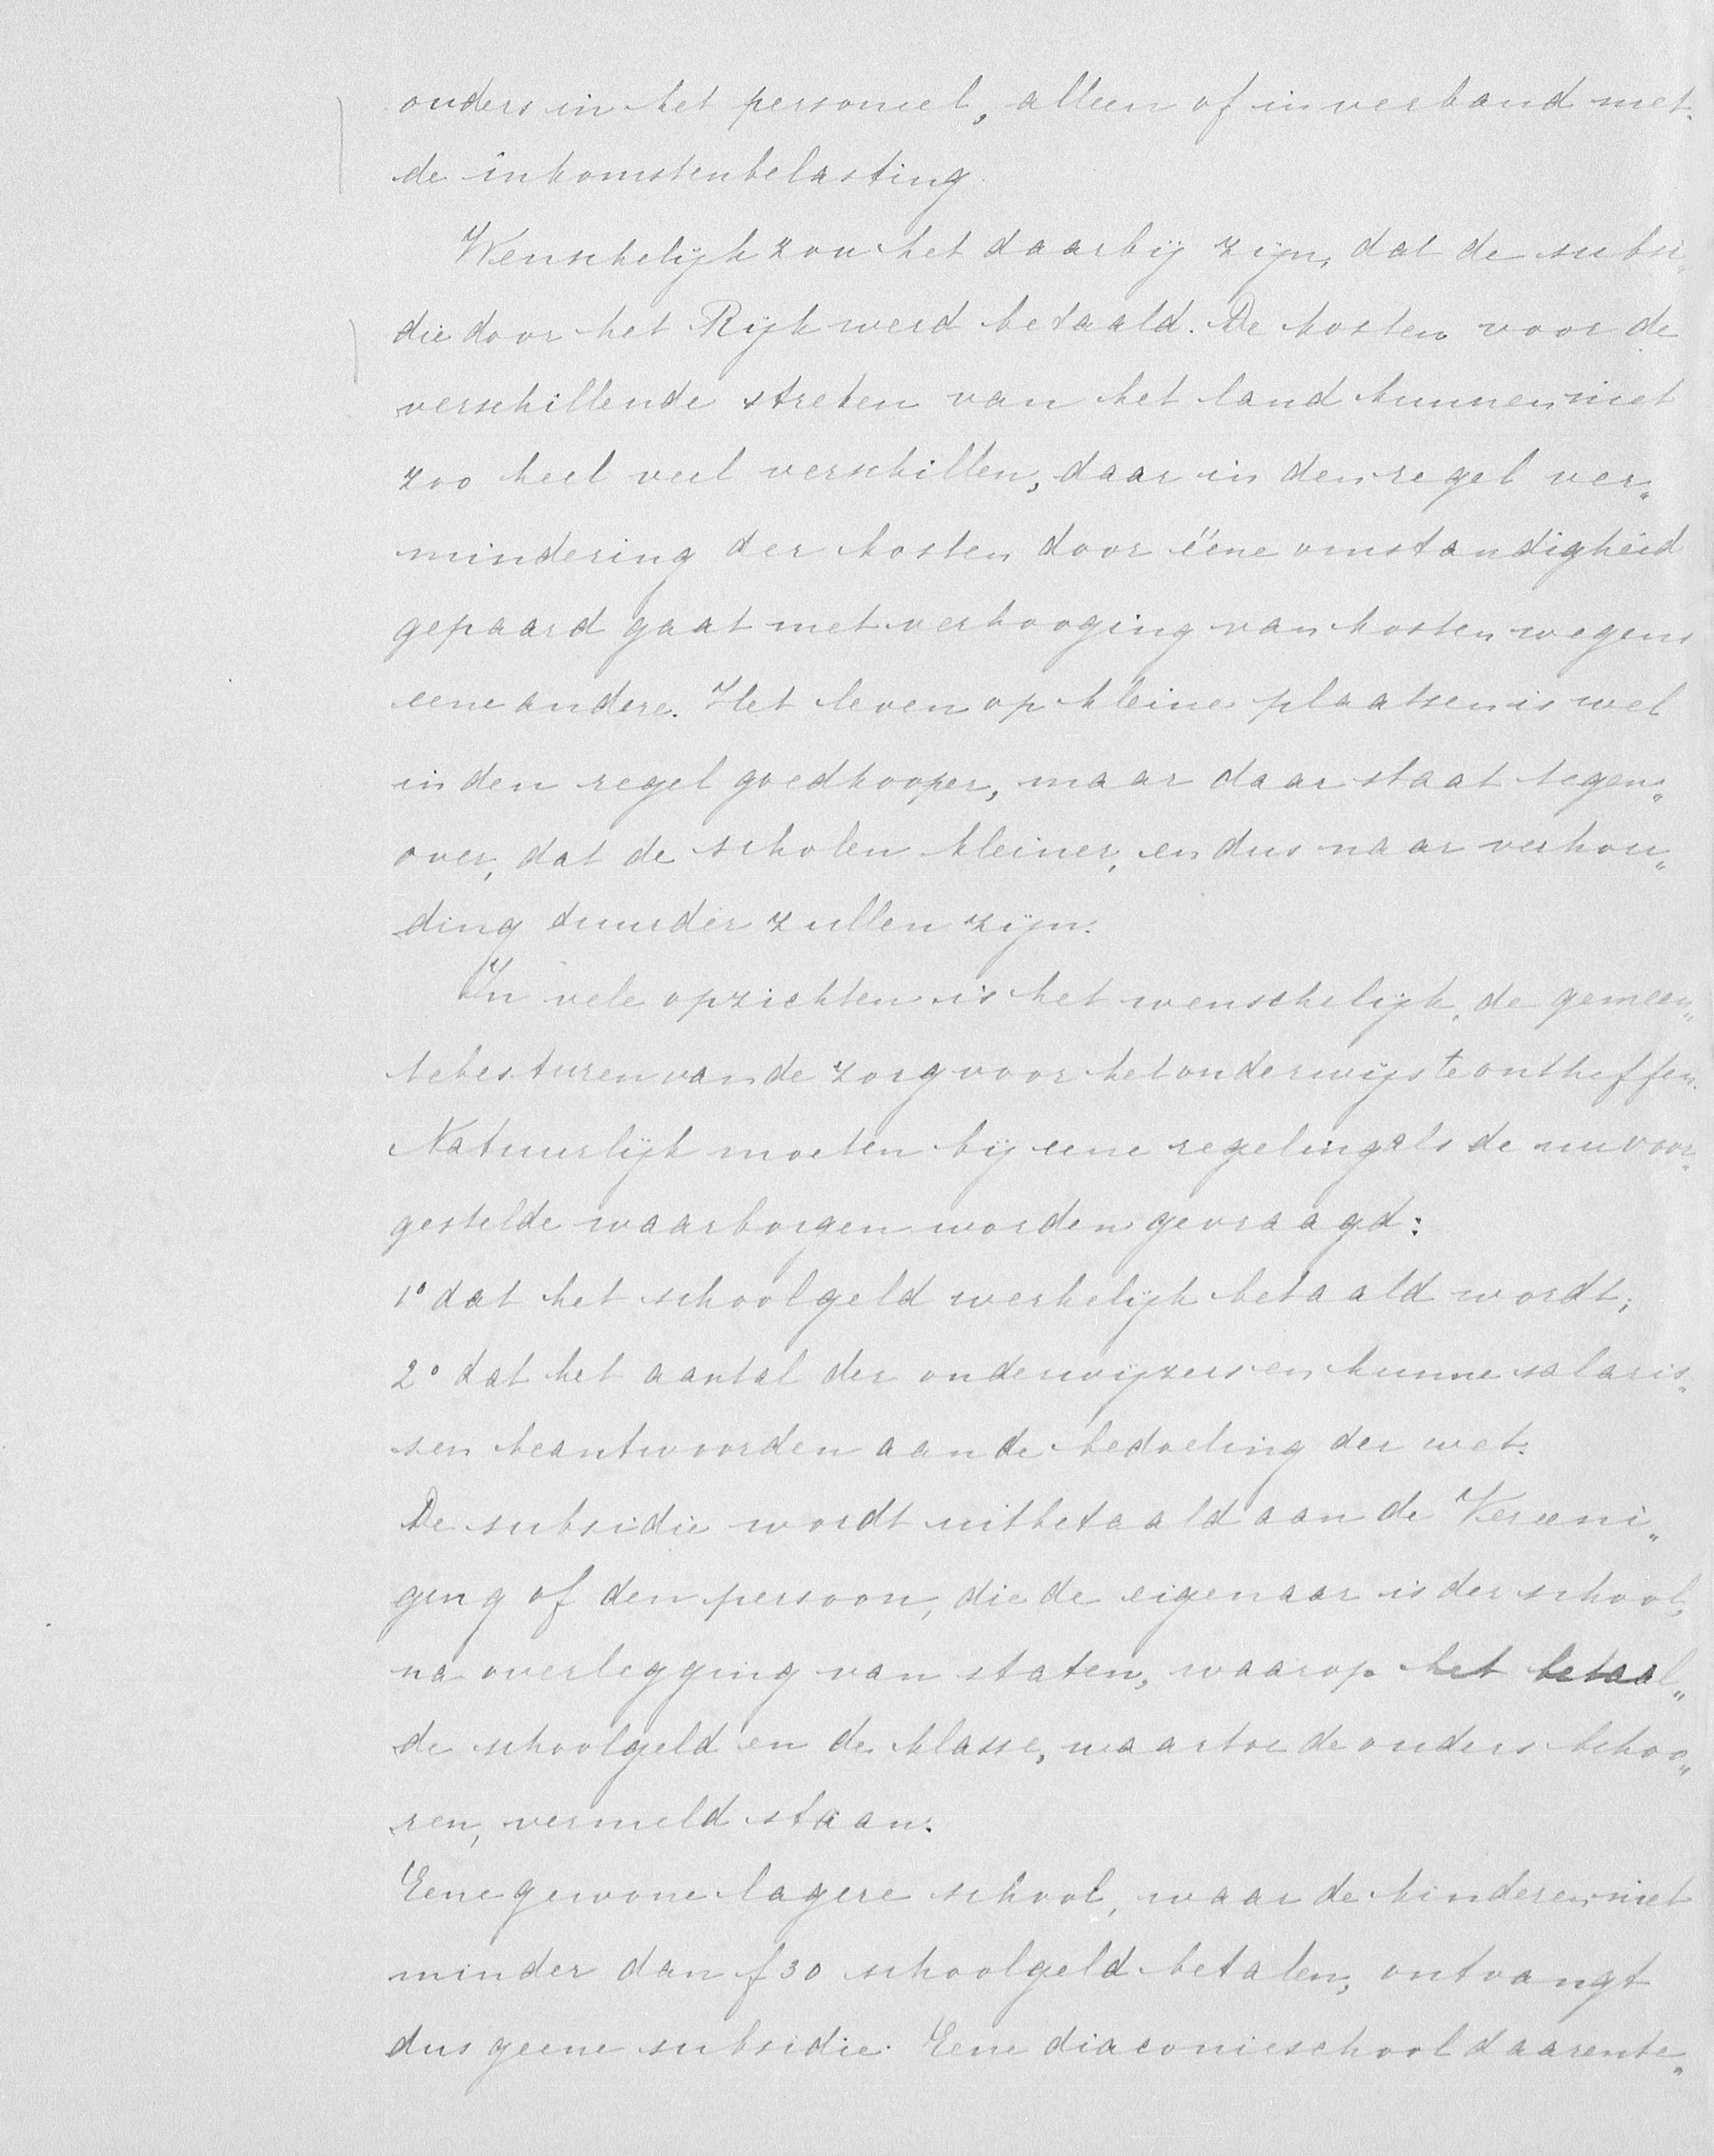 ouders in het personeel, alleen of in verband met
de inkomstenbelasting.
Wenschelijk zou het daarbij zijn, dat de subsi„
die door het Rijk werd betaald. De kosten voor de
verschillende streken van het land kunnen niet
zoo heel veel verschillen, daar in den regel ver„
mindering der kosten door ééne omstandigheid
gepaard gaat met verhooging van kosten wegens
eene andere. Het leven op kleine plaatsen is wel
in den regel goedkooper, maar daar staat tegen„
over, dat de scholen kleiner, en dus naar verhou„
ding duurder zullen zijn.
In vele opzichten is het wenschelijk, de gemeen„
tebesturen van de zorg voor het onderwijs te ontheffen.
Natuurlijk moeten bij eene regeling als de nu voor„
gestelde waarborgen worden gevraagd:
1° dat het schoolgeld werkelijk betaald wordt;
2° dat het aantal der onderwijzers en hunne salaris„
sen beantwoorden aan de bedoeling der wet.
De subsidie wordt uitbetaald aan de Vereeni„
ging of den persoon, die de eigenaar is der school,
na overlegging van staten, waarop het betaal„
de schoolgeld en de klasse, waartoe de ouders behoo„
ren, vermeld staan.
Eene gewone lagere school, waar de kinderen niet
minder dan f 30 schoolgeld betalen, ontvangt
dus geene subsidie. Eene diaconieschool daarente„